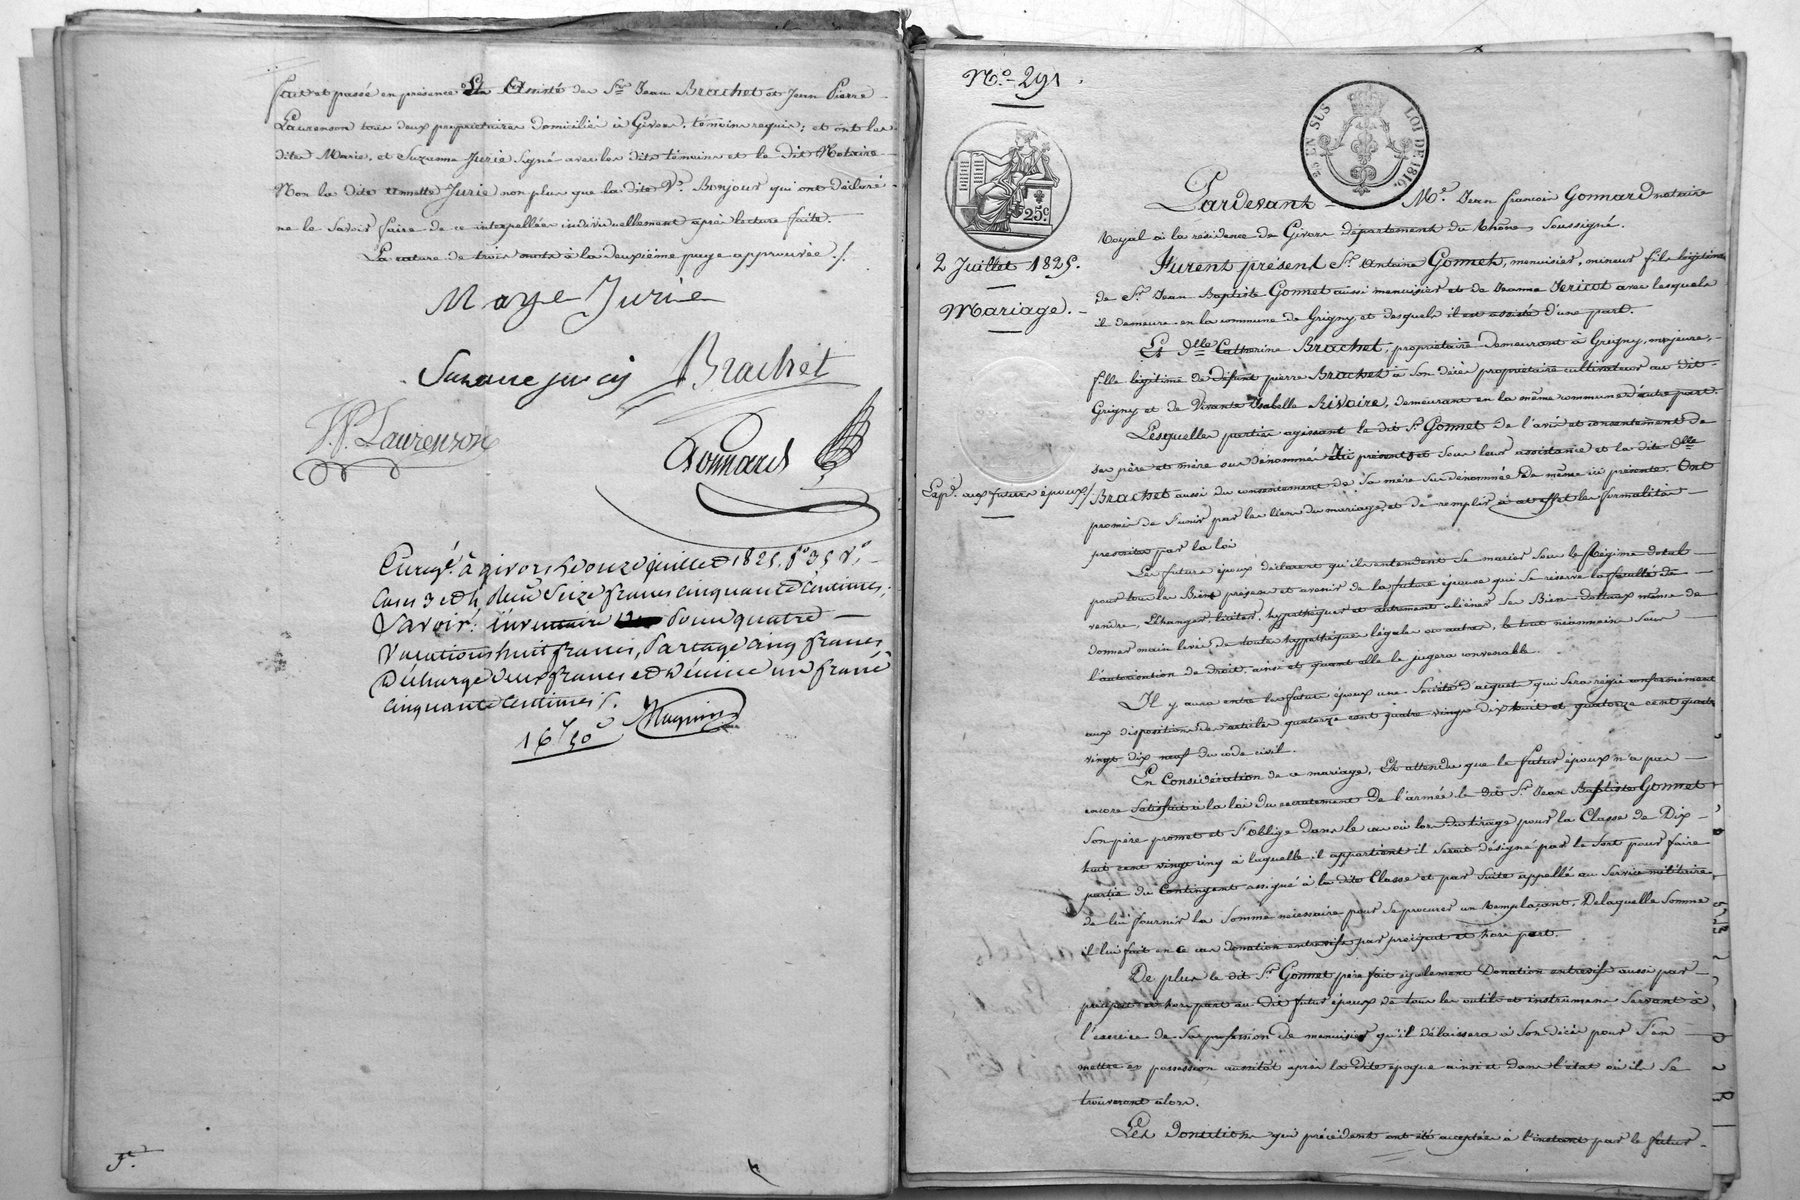 fait et passé en présence de Sr Jean Brachet et Jean Pierre
Laurenson tous deux propriétaires domiciliés à Givors, témoins requis; et ont les
dites Marie, et Suzanne Jurie signé avec les dits témoins et le dit Notaire
Non la dite Annette Jurie non plus que la dite Ve. Bonjour qui ont déclaré
ne le Savoir faire de ce interpellées individuellement après lecture faite.
La rature de trois mots à la deuxième page approuvée ./.
Marye Jurie
Suzanne juriy Brachet
J.P. Laurenson
Gonnard
Enregé. à givors le onze juillet 1825. fo 35 Vo,
Cases 3 et 4, Reçu Seize francs cinquante centimes;
Savoir: inventaire pour quatre
Vacations huit francs, Partage cinq francs,
Décharge deux francs et Décime un franc
cinquante centimes ./.
16f 50c
5e.
No. 291
25 EN SUS LOI DE 1816.
25c
2 Juillet 1825.
Mariage.
Expd. aux futurs époux/
Pardevant Me. Jean françois Gonnard notaire
Royal à la résidence de Givors département du Rhône, Soussigné.
Furent présent Sr. Antoine Gonnet, menuisier, mineur fils légitime
de Sr. Jean Baptiste Gonnet aussi menuisier et de Jeanne Jericot avec lesquels
il demeure en la commune de Grigny et desquels il est assisté d'une part.
Et Dlle Catherine Brachet, propriétaire demeurant à Grigny, majeure,
fille légitime de défunt pierre Brachet à son décès propriétaire cultivateur au dit
Grigny et de Vivante Isabelle Rivoire, demeurant en la même commune d'autre part.
Lesquelles parties agissant le dit Sr. Gonnet de l'avis et consentement de
ses père et mère sus dénommés ici présents et Sous leur assistance et la dite Dlle
Brachet aussi du consentement de Sa mère Sus dénommée De même ici présente. Ont
promis de S'unir par les liens du mariage, et de remplir à cet effet les formalités
prescrites par la loi
Les futurs époux déclarent qu'ils entendent Se marier Sous le Régime dotal
pour tous les Biens présens et avenir de la future épouse qui Se réserve la faculté de
vendre, Echanger, liciter, hypothéquer et autrement aliéner Ses Biens dotaux même de
donner main levée de toute hypothèque légale ou autre, le tout néanmoins Sous
l'autorisation de droit, ainsi et quant elle le jugera convenable.
Il y aura entre les futurs époux une Société d'acquets qui Sera régie conformément
aux dispositions des articles quatorze cent quatre vingt dix huit et quatorze cent quatre
vingt dix neuf du code civil.
En Considération de ce mariage, Et attendu que le futur époux n'a pas
encore Satisfait à la loi du recrutement De l'armée le dit Sr. Jean Baptiste Gonnet
Son père promet et S'oblige dans le cas où lors du tirage pour la Classe de Dix
huit cent vingt cinq à laquelle il appartient il Serait désigné par le Sort pour faire
partie du Contingent assigné à la dite Classe et par Suite appellé au Service militaire
de lui fournir la Somme nécessaire pour Se procurer un remplaçant, Delaquelle Somme
il lui fait en ce cas donation entrevifs par préciput et hors part.
De plus le dit Sr. Gonnet père fait également Donation entrevifs aussi par
préciput et hors part au dit futur époux de tous les outils et instrumens Servant à
l'exercice de Sa profession de menuisier qu'il délaissera à Son décès pour S'en
mettre en possession aussitôt après la dite époque ainsi et dans l'état où ils Se
trouveront alors.
Les donations qui précèdent ont été acceptées à l'instant par le futur